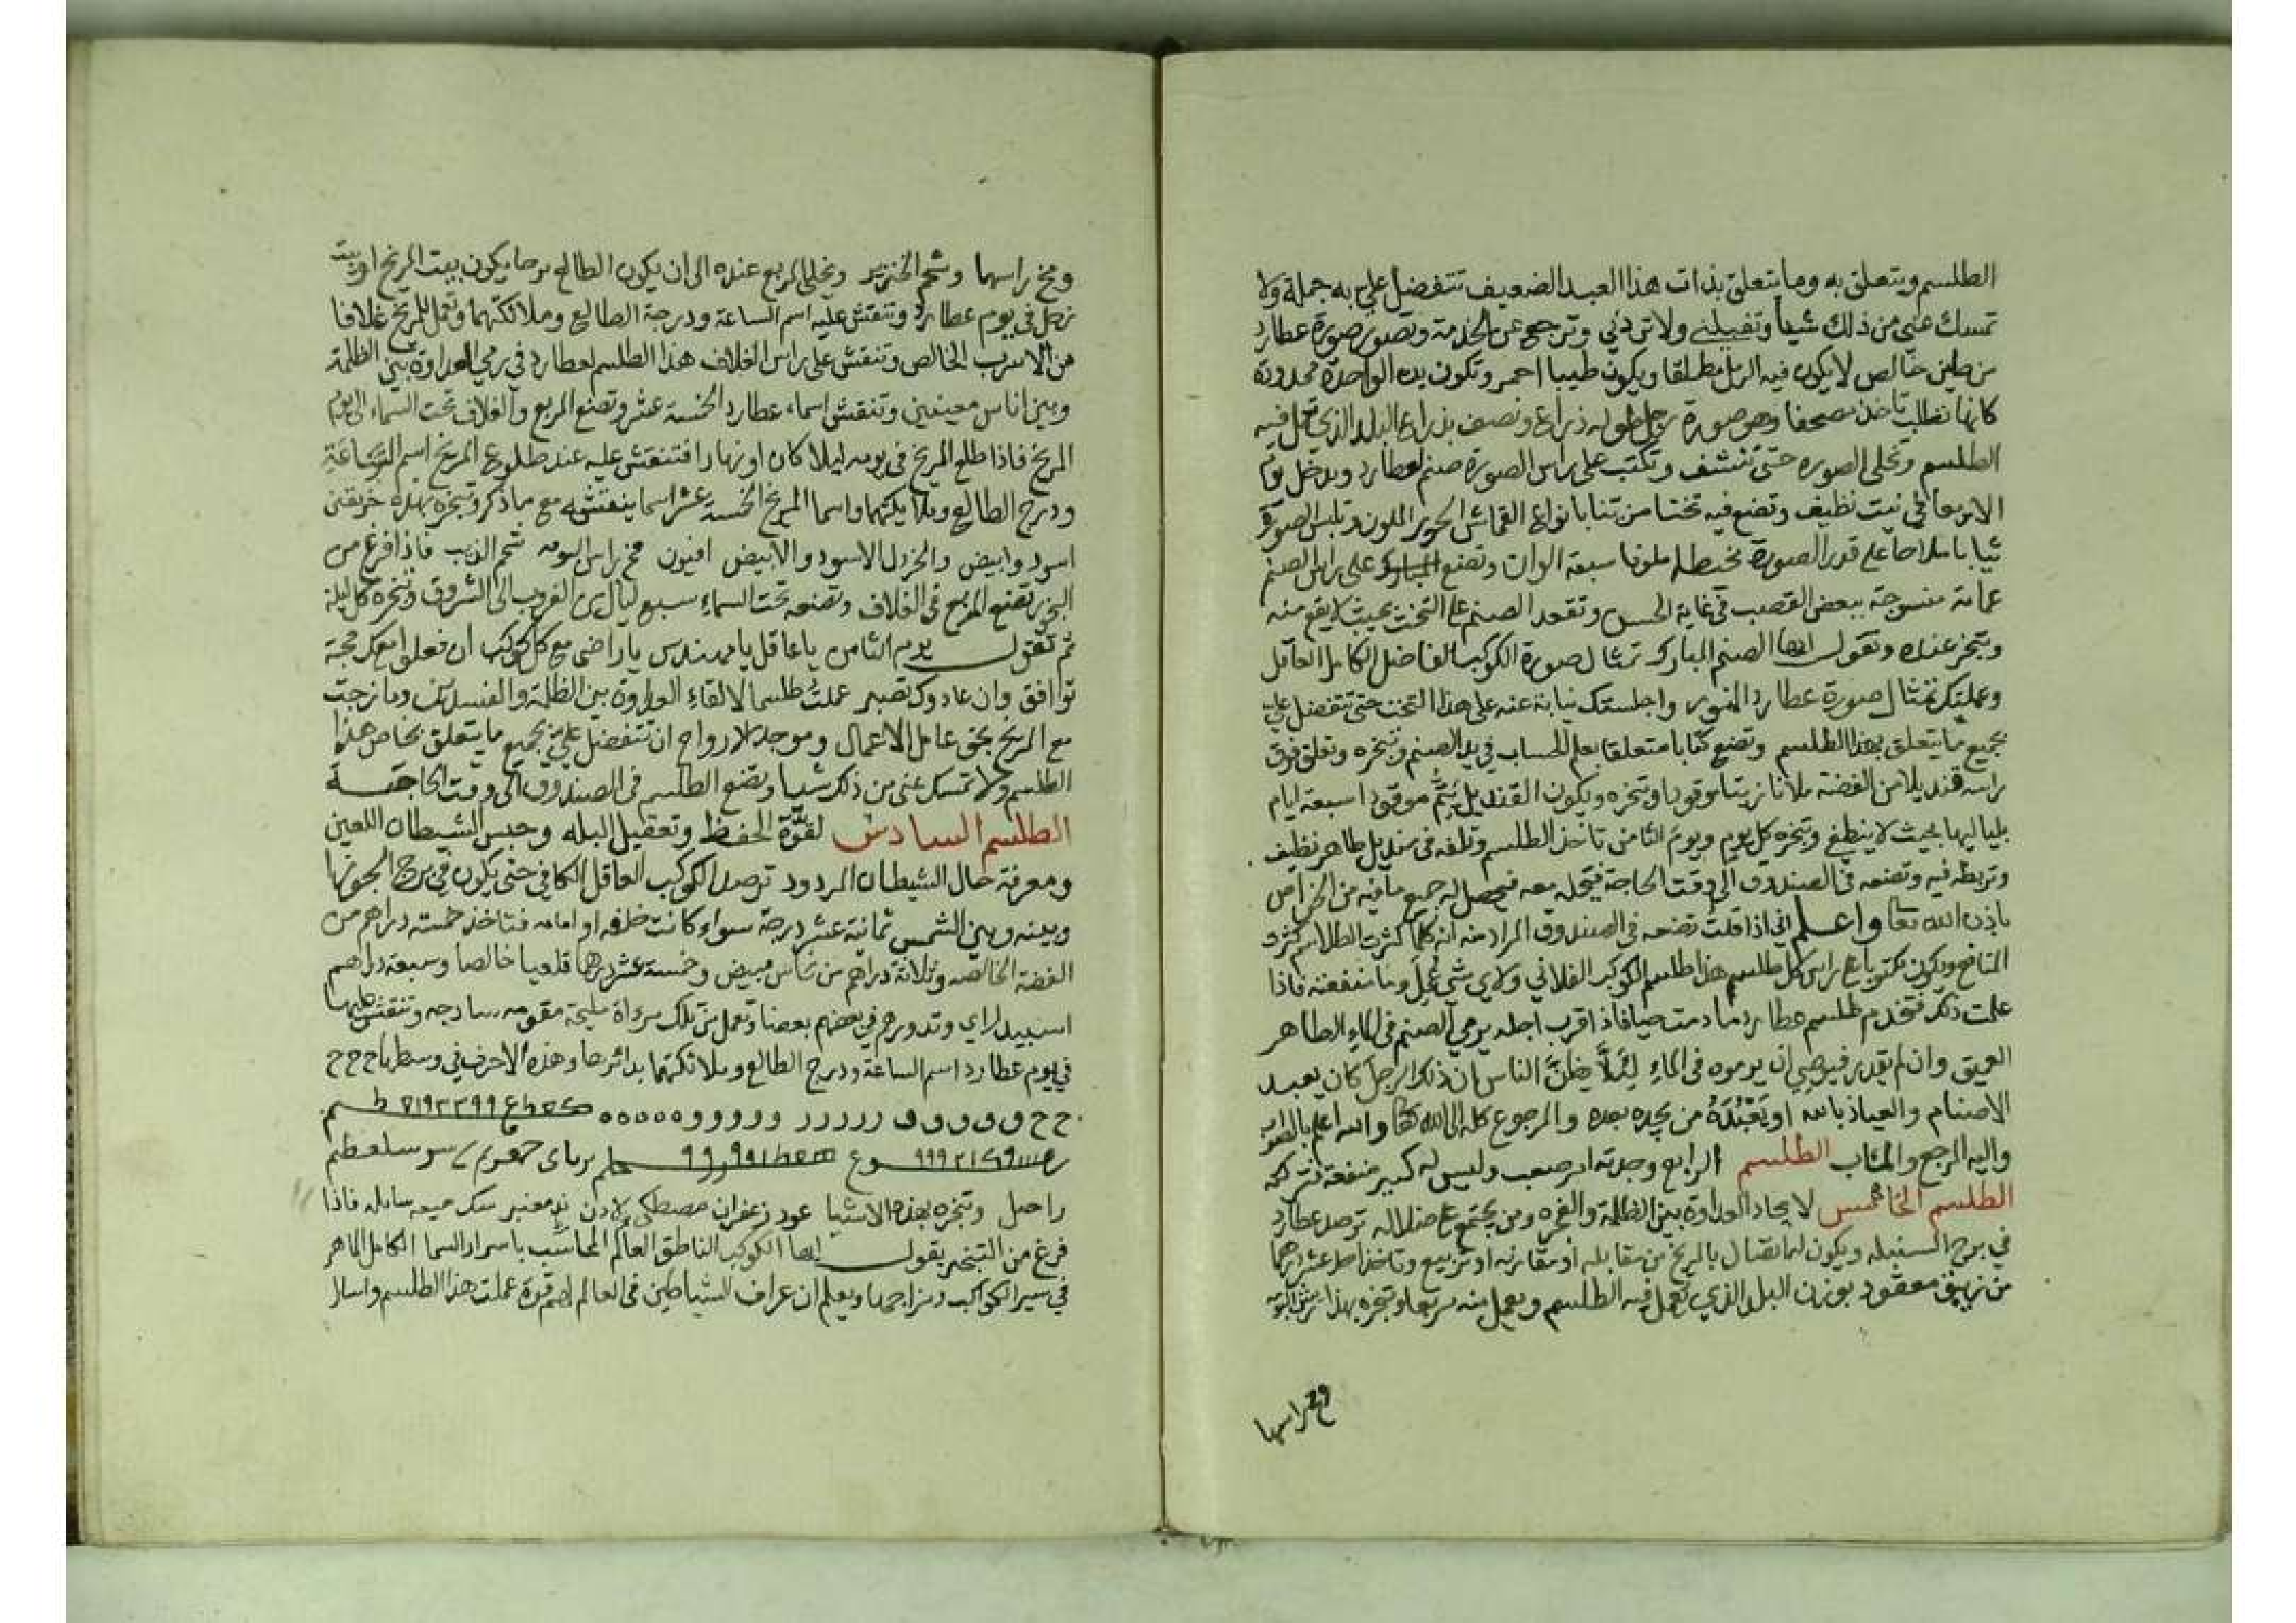 الطلسم ويتعلق به وما يتعلق بذات هذا العبد الضعيف تتفضل علي به جملة ولا
تمسك عني من ذلك شيأ وتقبلني ولا تردني وترجح عن الخدمة وتصور صورة عطارد
من طين خالص لا يكون فيه الرمل مطلقا ويكون طيبا احمر وتكون يده الواحدة ممدودة
كانها تطلب تاخذ مصحفا وهو صورة رجل طوله ذراع ونصف بذراع البلد الذي تعمل فيه
الطلسم وتخلى الصوره حتى تنشف وتكتب على راس الصورة صنم لعطارد ويدخل يوم
الاربعا في بيت نظيف وتضع فيه تختا مزينا بانواع القماش الحرير الملون وتلبس الصورة
ثيابا ملاحا على قدر الصورة مخيطا ملونا سبعة الوان وتضع على راس الصنم
عمامة منسوجة ببعض القصب في غاية الحسن وتقعد الصنم على التخت بحيث لا يقع منه
وتبخر عنده وتقول ايها الصنم المبارك تمثال صورة الكوكب الفاضل الكامل العاقل
وعملتك تمثال صورة عطارد المنور واجلستك نيابة عنه على هذا التخت حتى تتفضل علي
بجميع ما يتعلق بهذا الطلسم وتضع كتابا متعلقا بعلم الحساب في يد الصنم وتبخره وتعلق فوق
راسه قنديلا من الفضة ملانا زيتا موقودا وتبخره ويكون القنديل يتم موقودا سبعة ايام
بلياليها بحيث لا ينطفي وتبخره كل يوم ويوم الثامن تاخذ الطلسم وتلفه في منديل طاهر نظيف
وتربطه فيه وتضعه في الصندوق الى وقت الحاجة فتحله معه فيحصل له جميع ما فيه من الخواص
باذن الله تعا واعلم اني اذا قلت تضعه في الصندوق المراد منه انه كلما كثرت الطلاسم كثرت
المنافع ويكون مكتوبا على راس كل طلسم هذا طلسم الكوكب الفلاني ولاي شي عُمل وما منفعته فاذا
علمت ذلك فتخدم طلسم عطارد ما دمت حيا فاذا قرب اجله يرمي الصنم في الماء الطاهر
العميق وان لم يقدر فيوصي ان يرموه في الماء لِئلا يظنَّ الناس ان ذلك الرجل كان يعبد
الاصنام والعياذ بالله او يَعْبُدَهُ من يجده بعده والمرجوع كله الى الله تعا والله اعلم بالصواب
واليه المرجع والماب الطلسم الرابع وجدته امر صعب وليس له كبير منفعة فتركته
الطلسم الخامس لايجاد العداوة بين الظلمة والفجره ومن يجتمع على ضلاله ترصد عطارد
في برج السنبله ويكون له اتصال بالمريخ من مقابله او مقارنه او تربيع وتاخذ احد عشر درهما
من زيبق معقود بوزن البلد الذي تعمل فيه الطلسم ويعمل منه مربعا وتبخره بهذا ريش البومه
ومخ راسها
ومخ راسها وشحم الخنزير ويخلي المربع عنده الى ان يكون الطالع برجا يكون بيت المريخ او بيت
زحل في يوم عطارد وتنقش عليه اسم الساعة ودرجة الطالع وملائكتهما وتعمل للمربع غلافا
من الاسرب الخالص وتنقش على راس الغلاف هذا الطلسم لعطارد في رمي العداوة بين الظلمة
وبين اناس معينين وتنقش اسماء عطارد الخمسة عشر وتضع المربع والغلاف تحت السماء الى يوم
المريخ فاذا طلع المريخ في يومه ليلا كان او نهارا فتنقش عليه عند طلوع المريخ اسم السَّاعَةِ
ودرج الطالع وملايكتهما واسما المريخ الخمسة عشر اسما ينقشه مع ما ذكر وتبخره بهذه خربقين
اسود وابيض والخردل الاسود والابيض افيون مخ راس البومه شحم الدب فاذا فرغ من
البخور تضع المربع في الغلاف وتضعه تحت السماء سبع ليال من الغروب الى الشروق وتبخره كل ليلة
ثم تقول يوم الثامن يا عاقل يا مهندس يا راضي مع كل كوكب ان فعلوا معك محبة
توافق وان عادوك تصبر عملت طلسما لالقاء العداوة بين الظلمة والمفسدين ومازجت
مع المريخ بحق عامل الاعمال وموجد الارواح ان تتفضل علي بجميع ما يتعلق بخاص هذا
الطلسم ولا تمسك عني من ذلك شيا وتضع الطلسم في الصندوق الى وقت الحاجة
الطلسم السادس لقوَّة الحفظ وتعقيل البله وحبس الشيطان اللعين
ومعرفة حال الشيطان المردود ترصد الكوكب العاقل الكافي حتى يكون في برج الجوزا
وبينه وبين الشمس ثمانية عشر درجة سواء كانت خلفه او امامه فتاخذ خمسة دراهم من
الفضة الخالصه وثلاثة دراهم من نحاس مبيض وخمسة عشر درهما قلعيا خالصا وسبعة دراهم
اسبيدراي وتدورهم في بعضهم بعضا وتعمل من تلك مرءاة مليحة مقومه ساذجه وتنقش عليها
في يوم عطارد اسم الساعة ودرج الطالع وملائكتهما بدائرها وهذه الاحرف في وسطها ح ح ح
ح ح و و و و و ر ر ر ر ر و و و و و ٥ ٥ ٥ ٥ ٥
راحل وتبخره بهذه الاشيا عود زعفران مصطكى لادن ند معنبر سك ميعه سايله فاذا
فرغ من التبخر يقول ايها الكوكب الناطق العالم المحاسَب باسرار السما الكامل الماهر
في سير الكواكب ومزاجها ويعلم ان عراف الشياطين في العالم لهم قوة عملت هذا الطلسم واسال